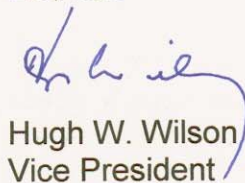 Hugh W. Wilson
Vice President